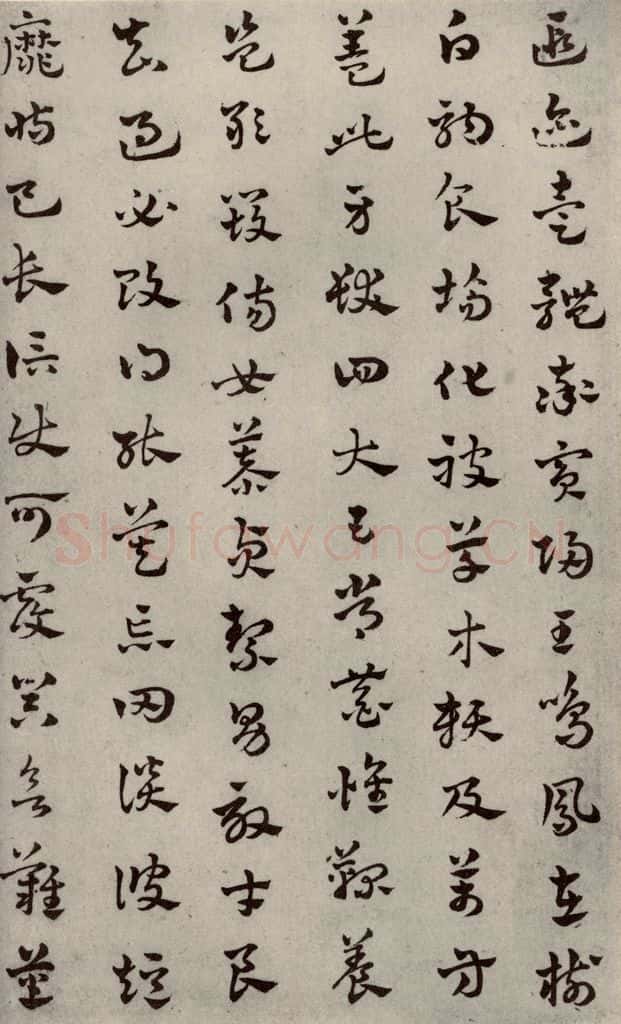 遐迩壹體率賓歸王鳴鳳在樹
白駒食場化被草木賴及萬方
蓋此身髮四大五常恭惟鞠養
豈敢毀傷女慕貞絜男效才良
知過必改得能莫忘罔談彼短
靡恃己長信使可覆器欲難量
Shufawang.CN